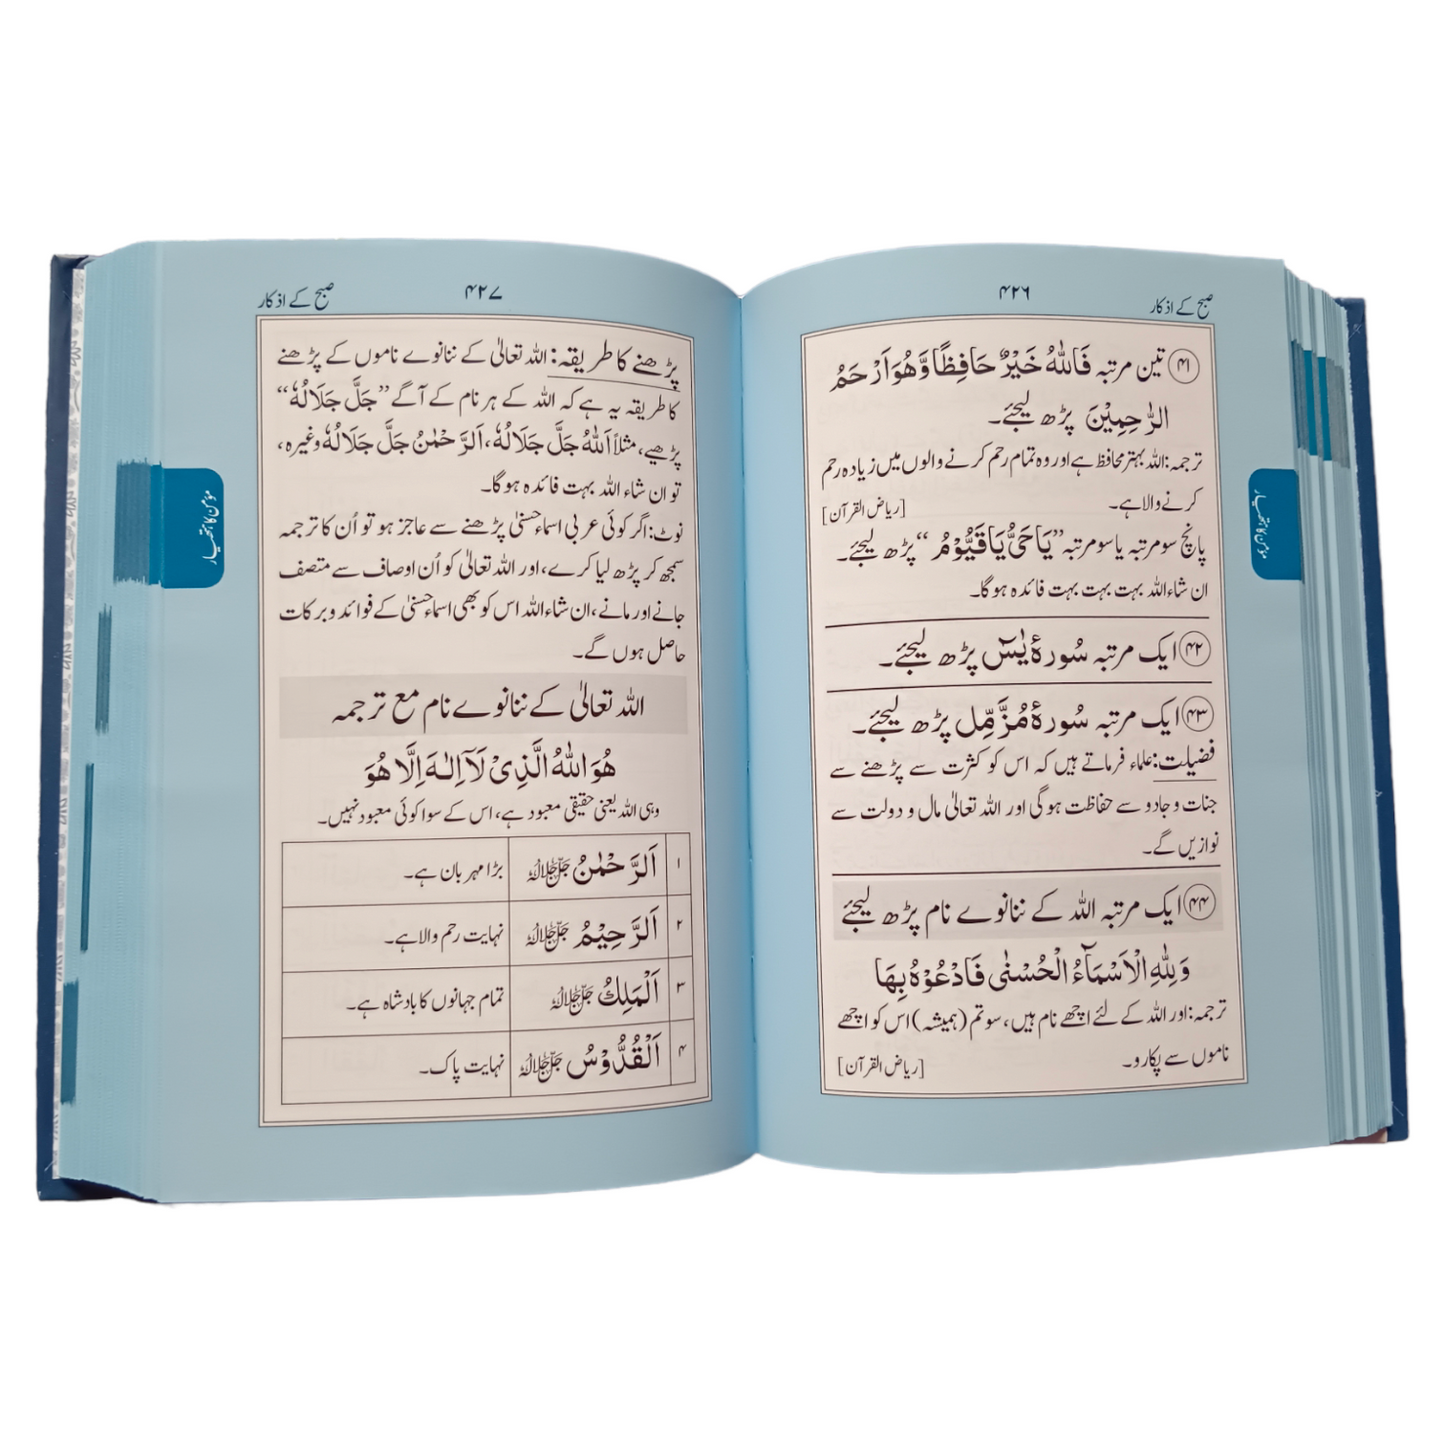 صبح کے اذکار
۴۲۶
۴۱ تین مرتبہ فَاللّٰهُ خَيْرٌ حَافِظًا وَّهُوَ اَرْحَمُ
الرّٰحِمِيْنَ پڑھ لیجئے۔
ترجمہ: اللہ بہتر محافظ ہے اور وہ تمام رحم کرنے والوں میں زیادہ رحم
کرنے والا ہے۔ [ریاض القرآن]
پانچ سو مرتبہ یا سو مرتبہ ”يَا حَيُّ يَا قَيُّوْمُ“ پڑھ لیجئے۔
ان شاء اللہ بہت بہت بہت فائدہ ہوگا۔
۴۲ ایک مرتبہ سُورۂ یٰسٓ پڑھ لیجئے۔
۴۳ ایک مرتبہ سُورۂ مُزَّمِّل پڑھ لیجئے۔
فضیلت: علماء فرماتے ہیں کہ اس کو کثرت سے پڑھنے سے
جنات و جادو سے حفاظت ہوگی اور اللہ تعالیٰ مال و دولت سے
نوازیں گے۔
۴۴ ایک مرتبہ اللہ کے ننانوے نام پڑھ لیجئے
وَلِلّٰهِ الْاَسْمَآءُ الْحُسْنٰى فَادْعُوْهُ بِهَا
ترجمہ: اور اللہ کے لئے اچھے نام ہیں، سو تم (ہمیشہ) اس کو اچھے
ناموں سے پکارو۔ [ریاض القرآن]
مؤمن کا ہتھیار
۴۲۷
صبح کے اذکار
پڑھنے کا طریقہ: اللہ تعالیٰ کے ننانوے ناموں کے پڑھنے
کا طریقہ یہ ہے کہ اللہ کے ہر نام کے آگے ”جَلَّ جَلَالُهٗ“
پڑھیے، مثلاً اَللّٰهُ جَلَّ جَلَالُهٗ، اَلرَّحْمٰنُ جَلَّ جَلَالُهٗ وغیرہ،
تو ان شاء اللہ بہت فائدہ ہوگا۔
نوٹ: اگر کوئی عربی اسماء حسنیٰ پڑھنے سے عاجز ہو تو اُن کا ترجمہ
سمجھ کر پڑھ لیا کرے، اور اللہ تعالیٰ کو اُن اوصاف سے متصف
جانے اور مانے، ان شاء اللہ اس کو بھی اسماء حسنیٰ کے فوائد و برکات
حاصل ہوں گے۔
اللہ تعالیٰ کے ننانوے نام مع ترجمہ
هُوَ اللّٰهُ الَّذِىْ لَآ اِلٰهَ اِلَّا هُوَ
وہی اللہ یعنی حقیقی معبود ہے، اس کے سوا کوئی معبود نہیں۔
۱ اَلرَّحْمٰنُ جَلَّ جَلَالُهٗ بڑا مہربان ہے۔
۲ اَلرَّحِيْمُ جَلَّ جَلَالُهٗ نہایت رحم والا ہے۔
۳ اَلْمَلِكُ جَلَّ جَلَالُهٗ تمام جہانوں کا بادشاہ ہے۔
۴ اَلْقُدُّوْسُ جَلَّ جَلَالُهٗ نہایت پاک۔
مؤمن کا ہتھیار